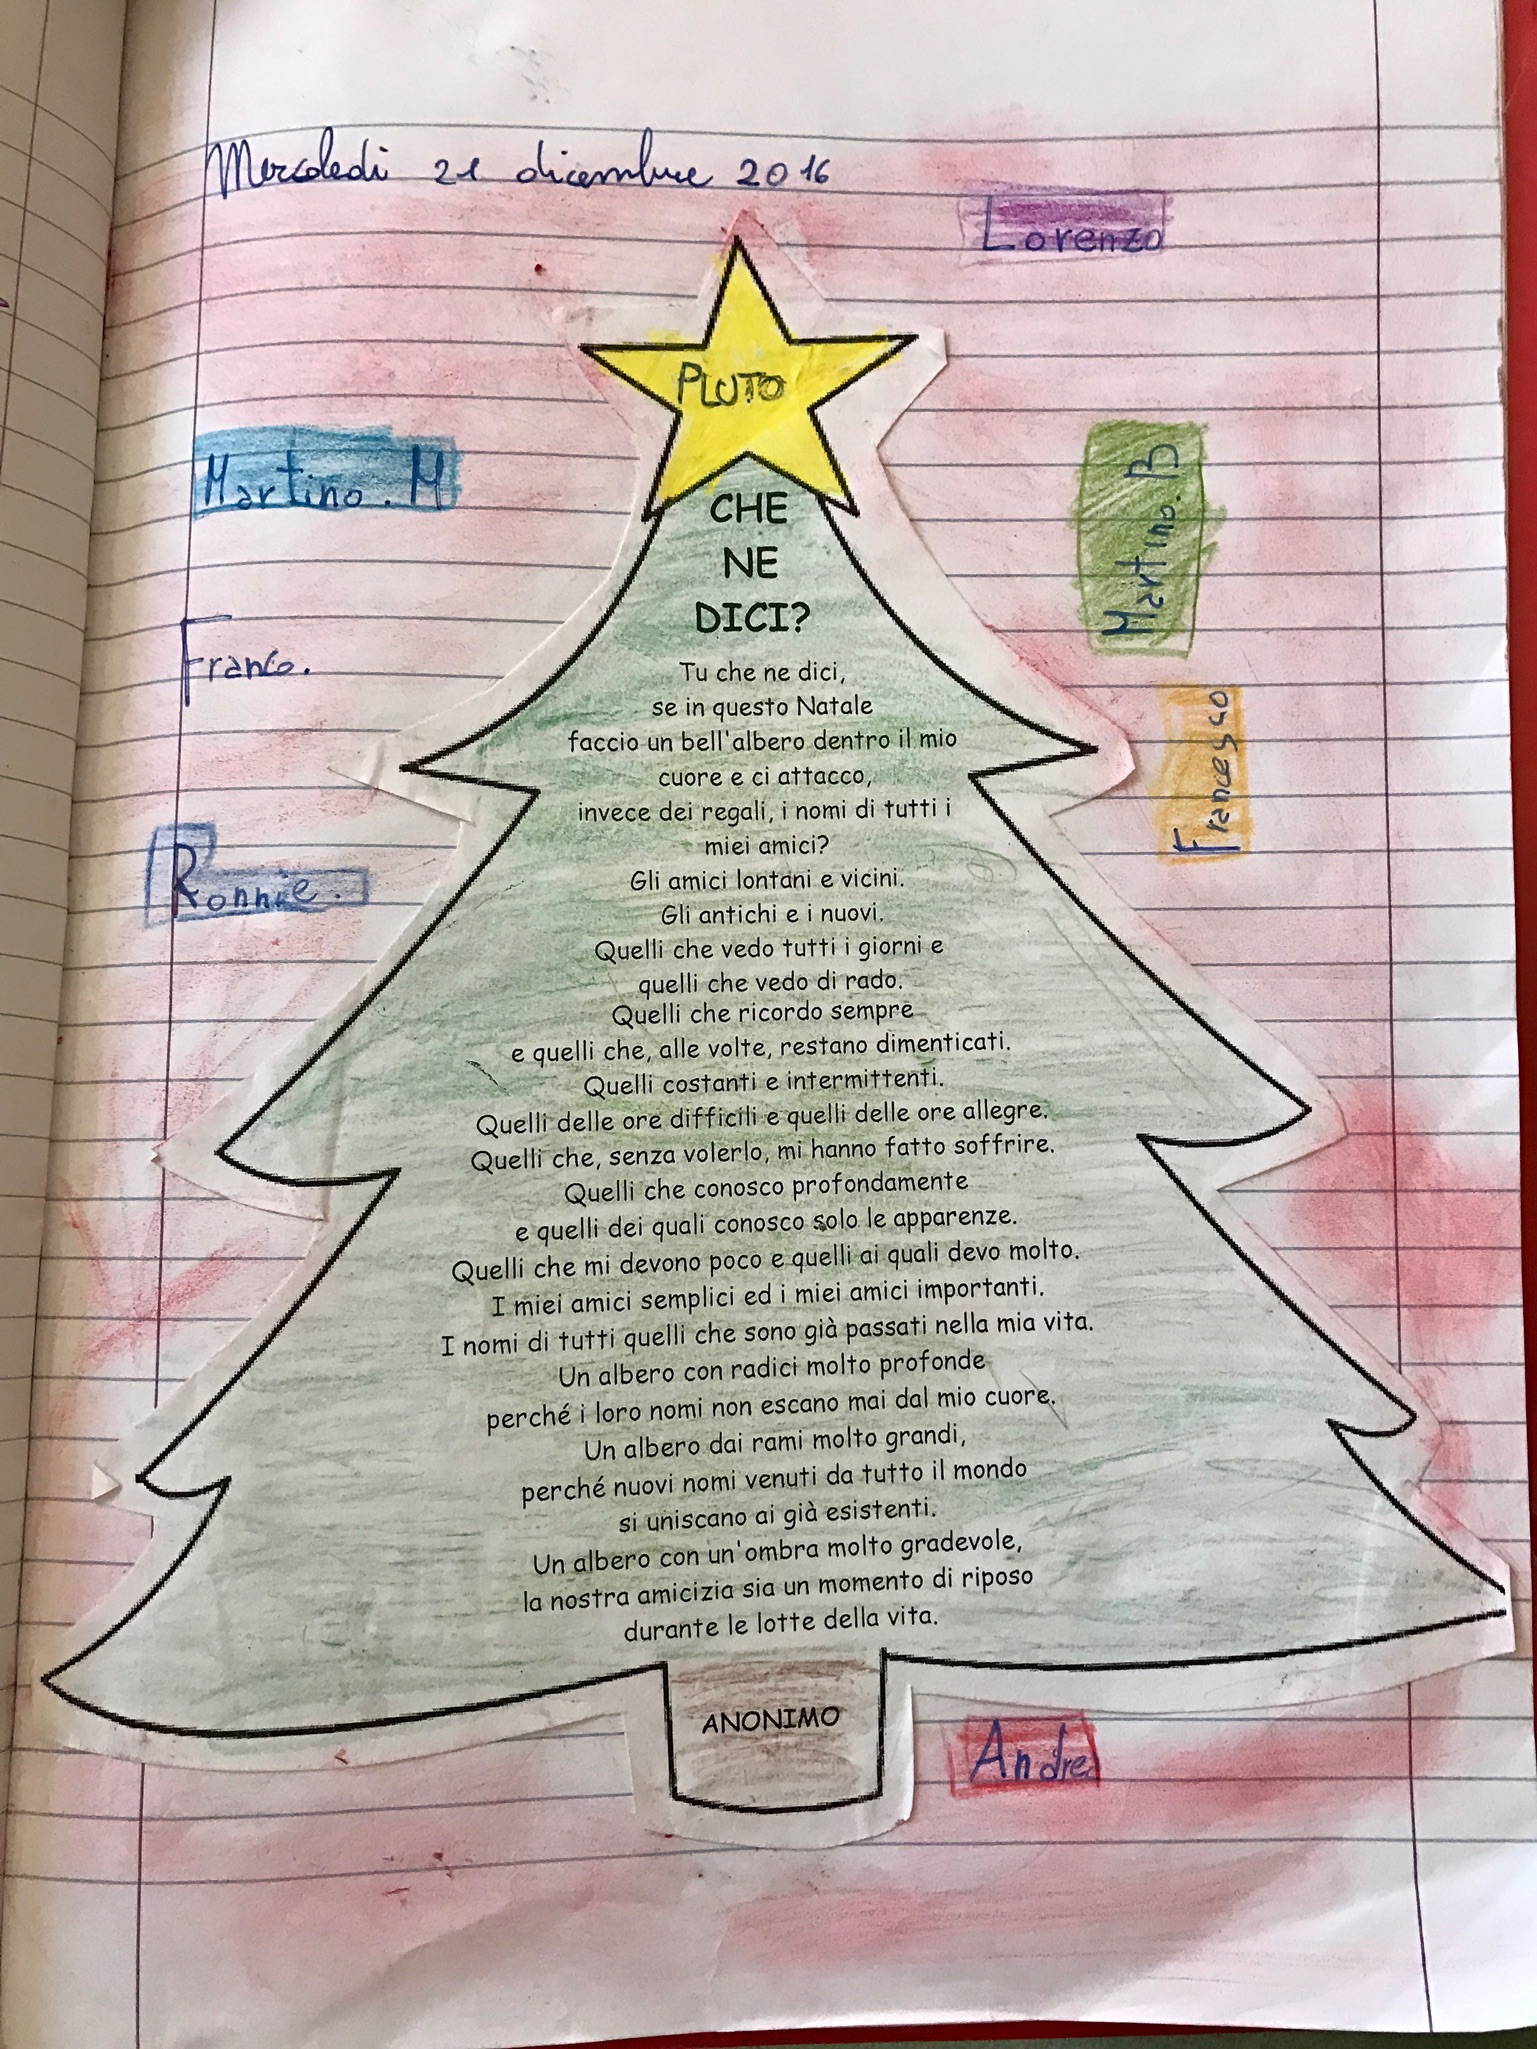 Mercoledì 21 dicembre 2016
Lorenzo
PLUTO
Martino. M
Martino. B
CHE
NE
DICI?
Franco.
Francesco
Ronnie.
Tu che ne dici,
se in questo Natale
faccio un bell'albero dentro il mio
cuore e ci attacco,
invece dei regali, i nomi di tutti i
miei amici?
Gli amici lontani e vicini.
Gli antichi e i nuovi.
Quelli che vedo tutti i giorni e
quelli che vedo di rado.
Quelli che ricordo sempre
e quelli che, alle volte, restano dimenticati.
Quelli costanti e intermittenti.
Quelli delle ore difficili e quelli delle ore allegre.
Quelli che, senza volerlo, mi hanno fatto soffrire.
Quelli che conosco profondamente
e quelli dei quali conosco solo le apparenze.
Quelli che mi devono poco e quelli ai quali devo molto.
I miei amici semplici ed i miei amici importanti.
I nomi di tutti quelli che sono già passati nella mia vita.
Un albero con radici molto profonde
perché i loro nomi non escano mai dal mio cuore.
Un albero dai rami molto grandi,
perché nuovi nomi venuti da tutto il mondo
si uniscano ai già esistenti.
Un albero con un'ombra molto gradevole,
la nostra amicizia sia un momento di riposo
durante le lotte della vita.
ANONIMO
Andrea